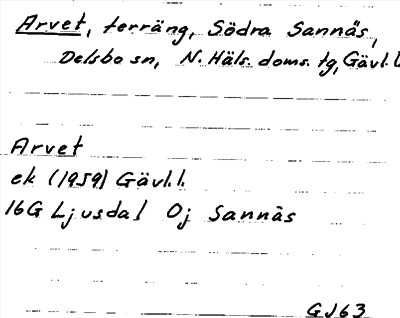 Arvet, terräng, Södra Sannäs,
Delsbo sn, N. Häls. doms. tg, Gävl. l
Arvet
ek (1959) Gävl. l.
16G Ljusdal 0j Sannäs
GJ63